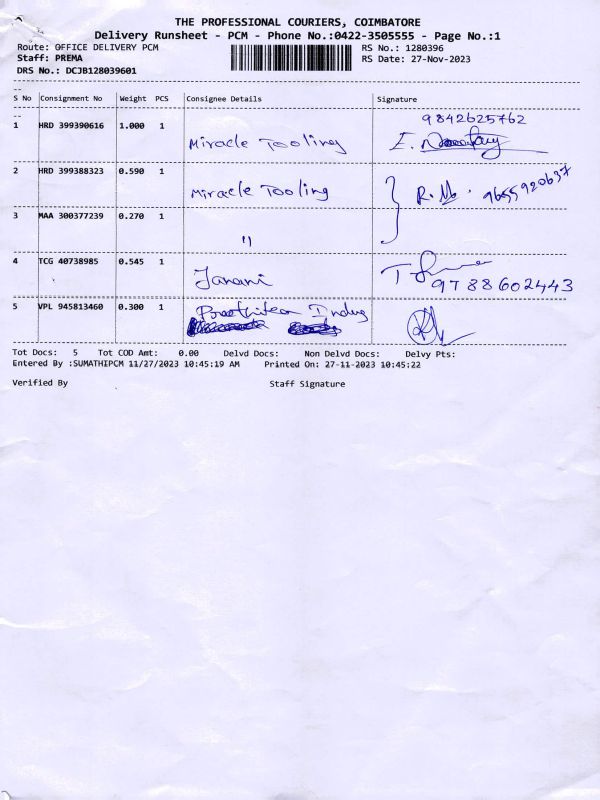 THE PROFESSIONAL COURIERS, COIMBATORE
Delivery Runsheet - PCM - Phone No.:0422-3505555 - Page No.:1
Route: OFFICE DELIVERY PCM RS No.: 1280396
Staff: PREMA RS Date: 27-Nov-2023
DRS No.: DCJB128039601
S No Consignment No Weight PCS Consignee Details Signature
9842625762
1 HRD 399390616 1.000 1 Miracle Tooling E.
2 HRD 399388323 0.590 1 Miracle Tooling R. 9655920637
3 MAA 300377239 0.270 1 "
4 TCG 40738985 0.545 1 Janani T
9788602443
5 VPL 945813460 0.300 1
Tot Docs: 5 Tot COD Amt: 0.00 Delvd Docs: Non Delvd Docs: Delvy Pts:
Entered By :SUMATHIPCM 11/27/2023 10:45:19 AM Printed On: 27-11-2023 10:45:22
Verified By Staff Signature